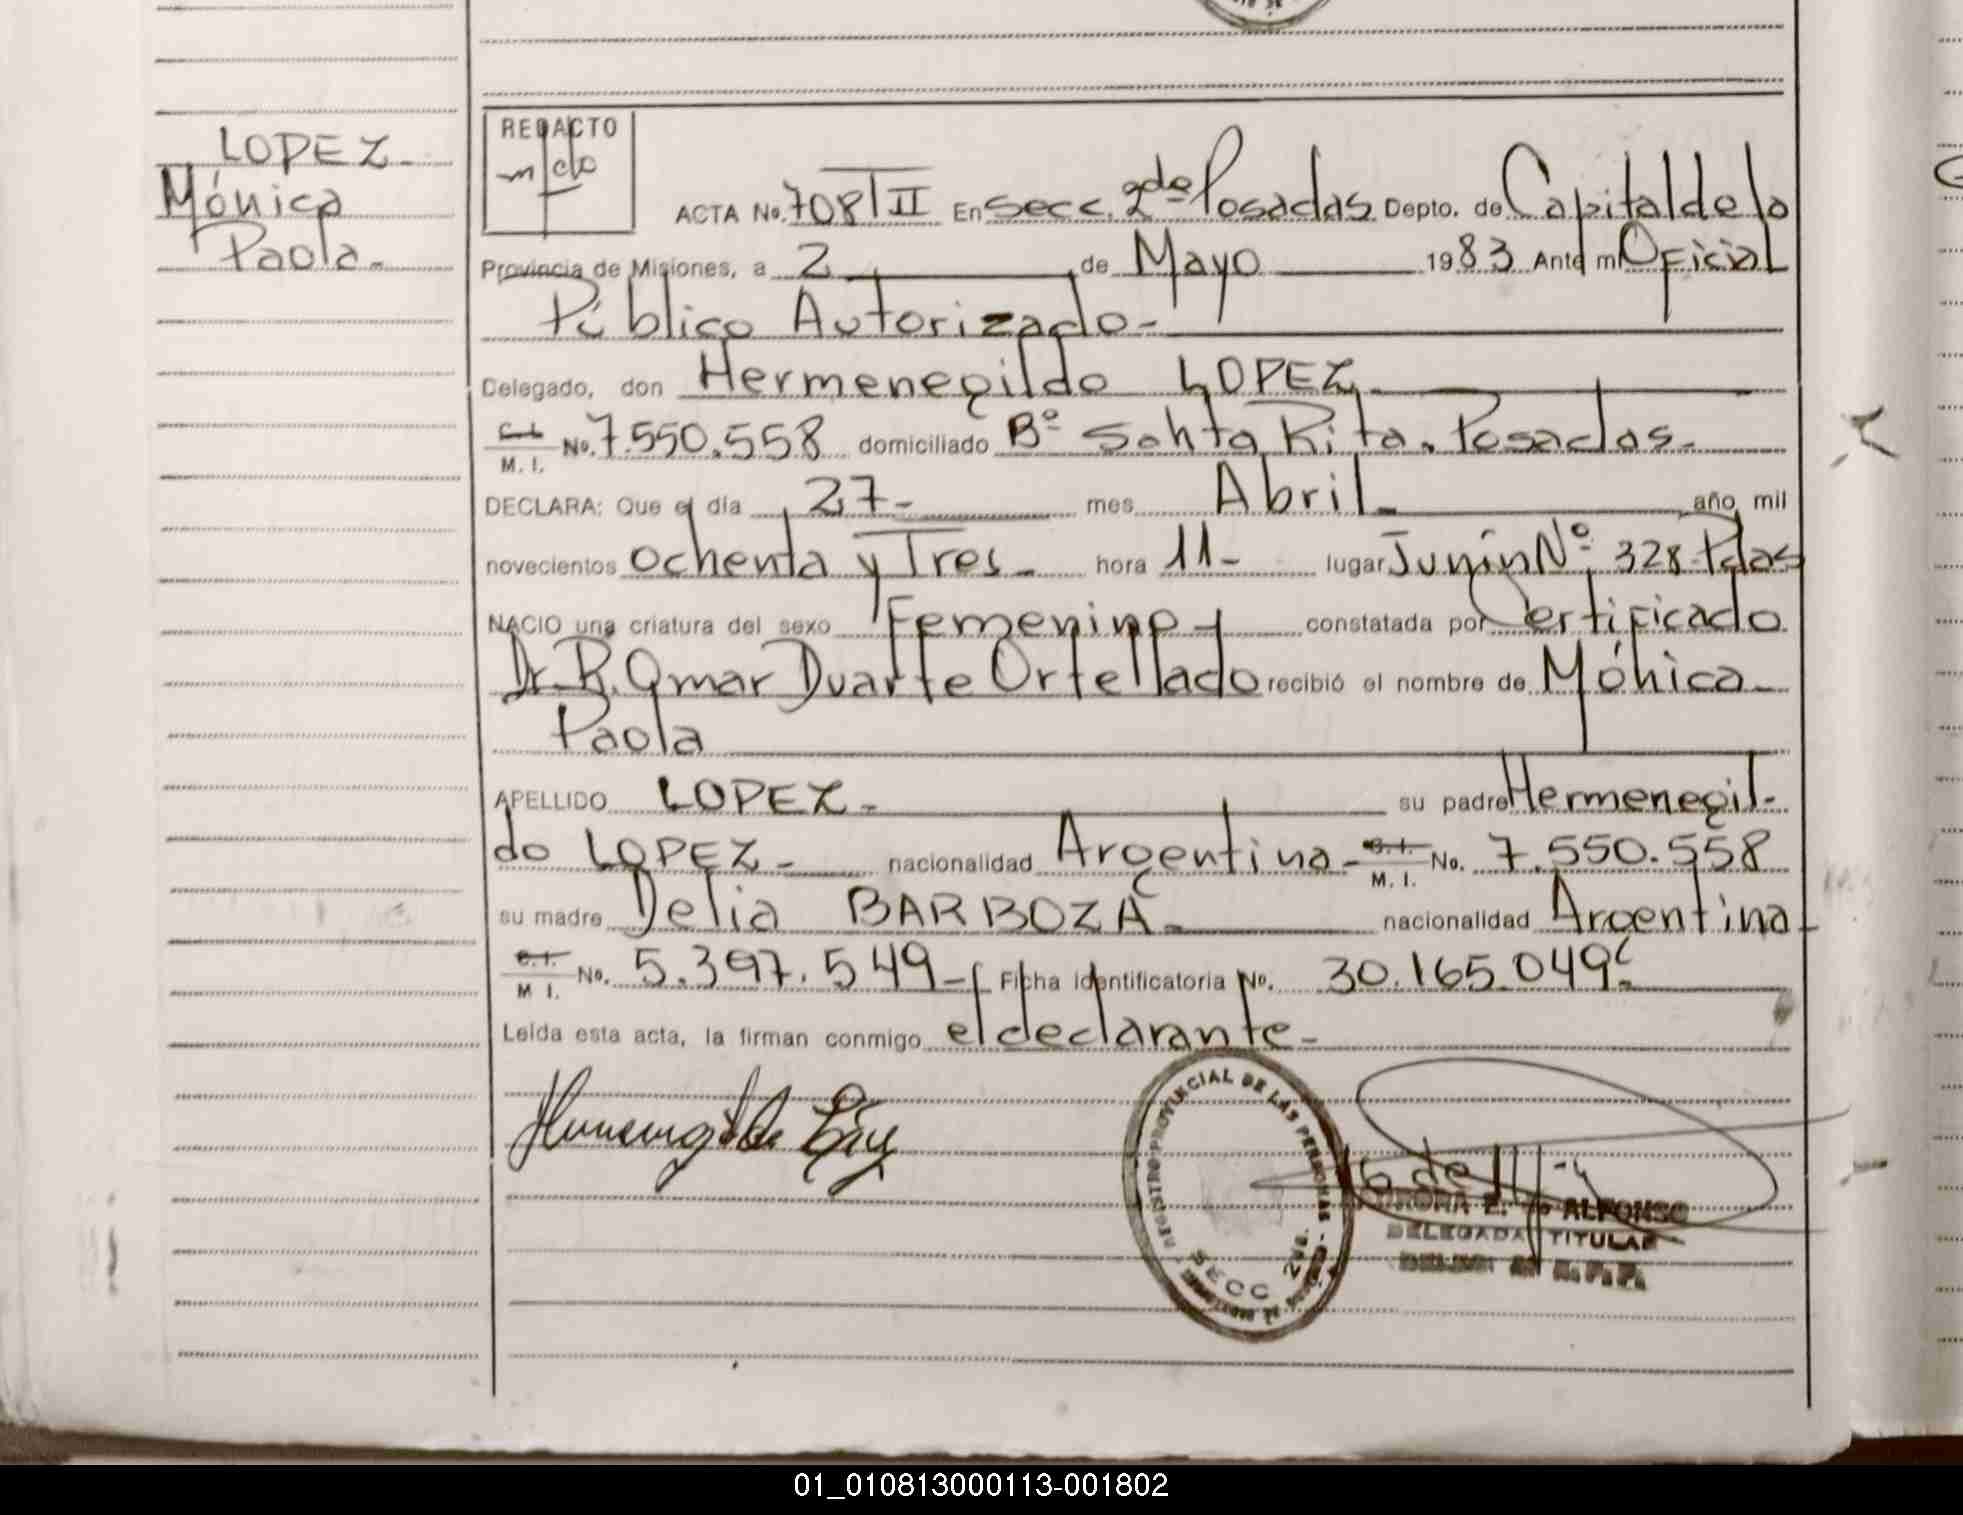 LOPEZ-
Mónica
Paola-
REDACTO
ACTA No. 708/II En Secc. 2da Posadas Depto. de Capital de la
Provincia de Misiones, a 2 de Mayo 1983 Ante mi Oficial
Público Autorizado-
Delegado, don Hermenegildo LOPEZ
C.I. M. I. No. 7.550.558 domiciliado Bº Santa Rita. Posadas.-
DECLARA: Que el día 27- mes Abril- año mil
novecientos ochenta y Tres- hora 11- lugar Junín Nº 328-Pdas
NACIO una criatura del sexo Femenino constatada por Certificado
Dr. R. Omar Duarte Ortellado recibió el nombre de Mónica-
Paola
APELLIDO LOPEZ- su padre Hermenegil-
do LOPEZ- nacionalidad Argentina- C.I. M. I. No. 7.550.558
su madre Delia BARBOZA- nacionalidad Argentina-
C.I. M I. No. 5.397.549- Ficha identificatoria No. 30.165.049
Leída esta acta, la firman conmigo el declarante-
REGISTRO PROVINCIAL DE LAS PERSONAS
SECC 2da.
ALFONSO
DELEGADA TITULAR
01_010813000113-001802